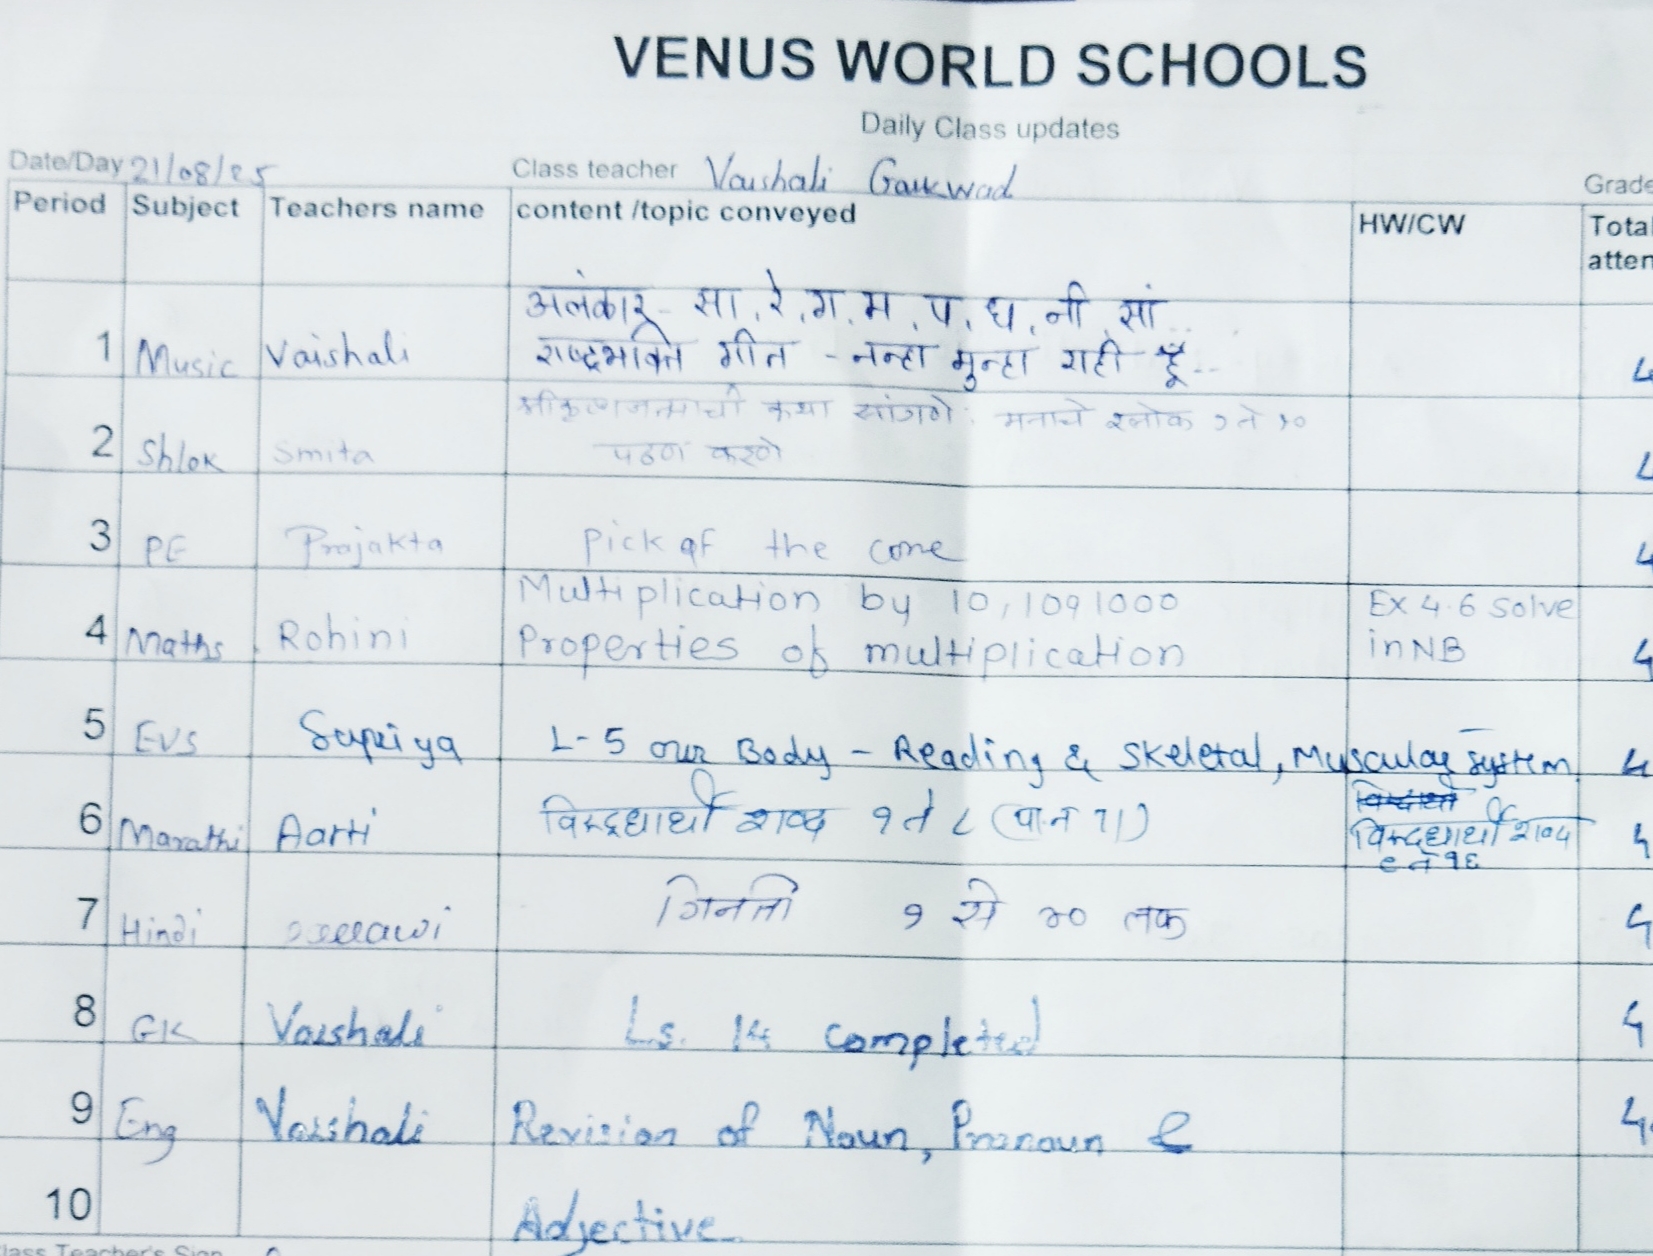 VENUS WORLD SCHOOLS
Daily Class updates
Date/Day 21/08/25 Class teacher Vaishali Gaikwad Grade
Period Subject Teachers name content /topic conveyed HW/CW Total atten
1 Music Vaishali अलंकार - सा, रे, ग, म, प, ध, नी, सां..
राष्ट्रभक्ति गीत - नन्हा मुन्हा राही हूँ..
2 Shlok Smita श्रीकृष्णजन्माची कथा सांगणे. मनाचे श्लोक १ ते १०
पठण करणे
3 PE Prajakta Pick of the cone
4 Maths Rohini Multiplication by 10, 109 1000 Ex 4.6 solve
Properties of multiplication in NB
5 EVS Supriya L-5 our Body - Reading & Skeletal, Muscular system
6 Marathi Aarti विरुद्धार्थी शब्द १ ते ८ (पान ७1) विरुद्धार्थी शब्द
९ ते १६
7 Hindi गिनती १ से २० तक
8 GK Vaishali Ls. 14 completed
9 Eng Vaishali Revision of Noun, Pronoun &
10 Adjective